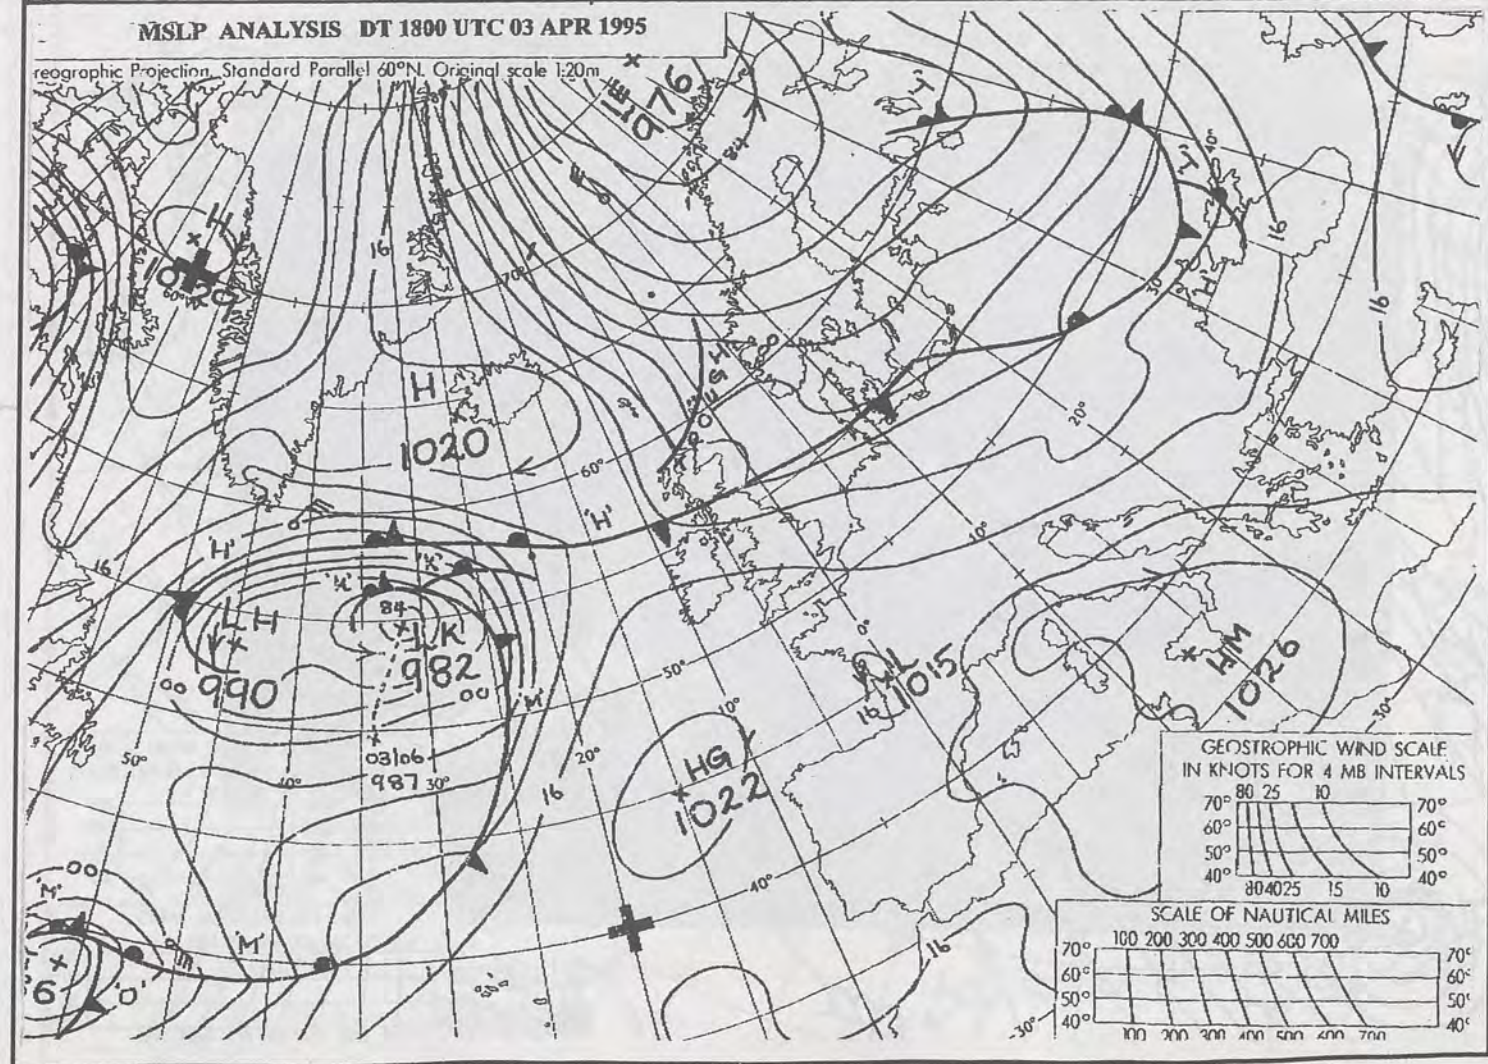 MSLP ANALYSIS DT 1800 UTC 03 APR 1995
reographic Projection, Standard Parallel 60°N. Original scale 1:20m
976
H
1020
16
70°
H
1020
60°
'H'
'H'
16
'K'
84
L H
L K
990
982
00
00
'M'
03/06
987
50°
40°
30°
20°
16
50°
10°
0°
HG
1022
40°
L
1015
16
H/M
1026
30°
20°
10°
30°
40°
16
16
00
'M'
'M'
'O'
6
16
30°
GEOSTROPHIC WIND SCALE
IN KNOTS FOR 4 MB INTERVALS
80 25 10
70° 70°
60° 60°
50° 50°
40° 40°
80 40 25 15 10
SCALE OF NAUTICAL MILES
100 200 300 400 500 600 700
70° 70°
60° 60°
50° 50°
40° 40°
100 200 300 400 500 600 700